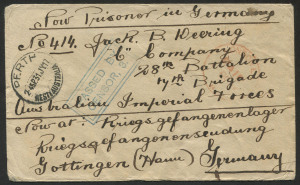 Now Prisoner in Germany
No 414. Jack. B. Deering
"C" Company
28th Battalion
7th Brigade
Australian Imperial Forces
Now at: Kriegsgefangenenlager
Kriegsgefangenensendung
Gottingen (Hann) Germany
PERTH
WESTERN AUSTRALIA
PASSED BY
CENSOR